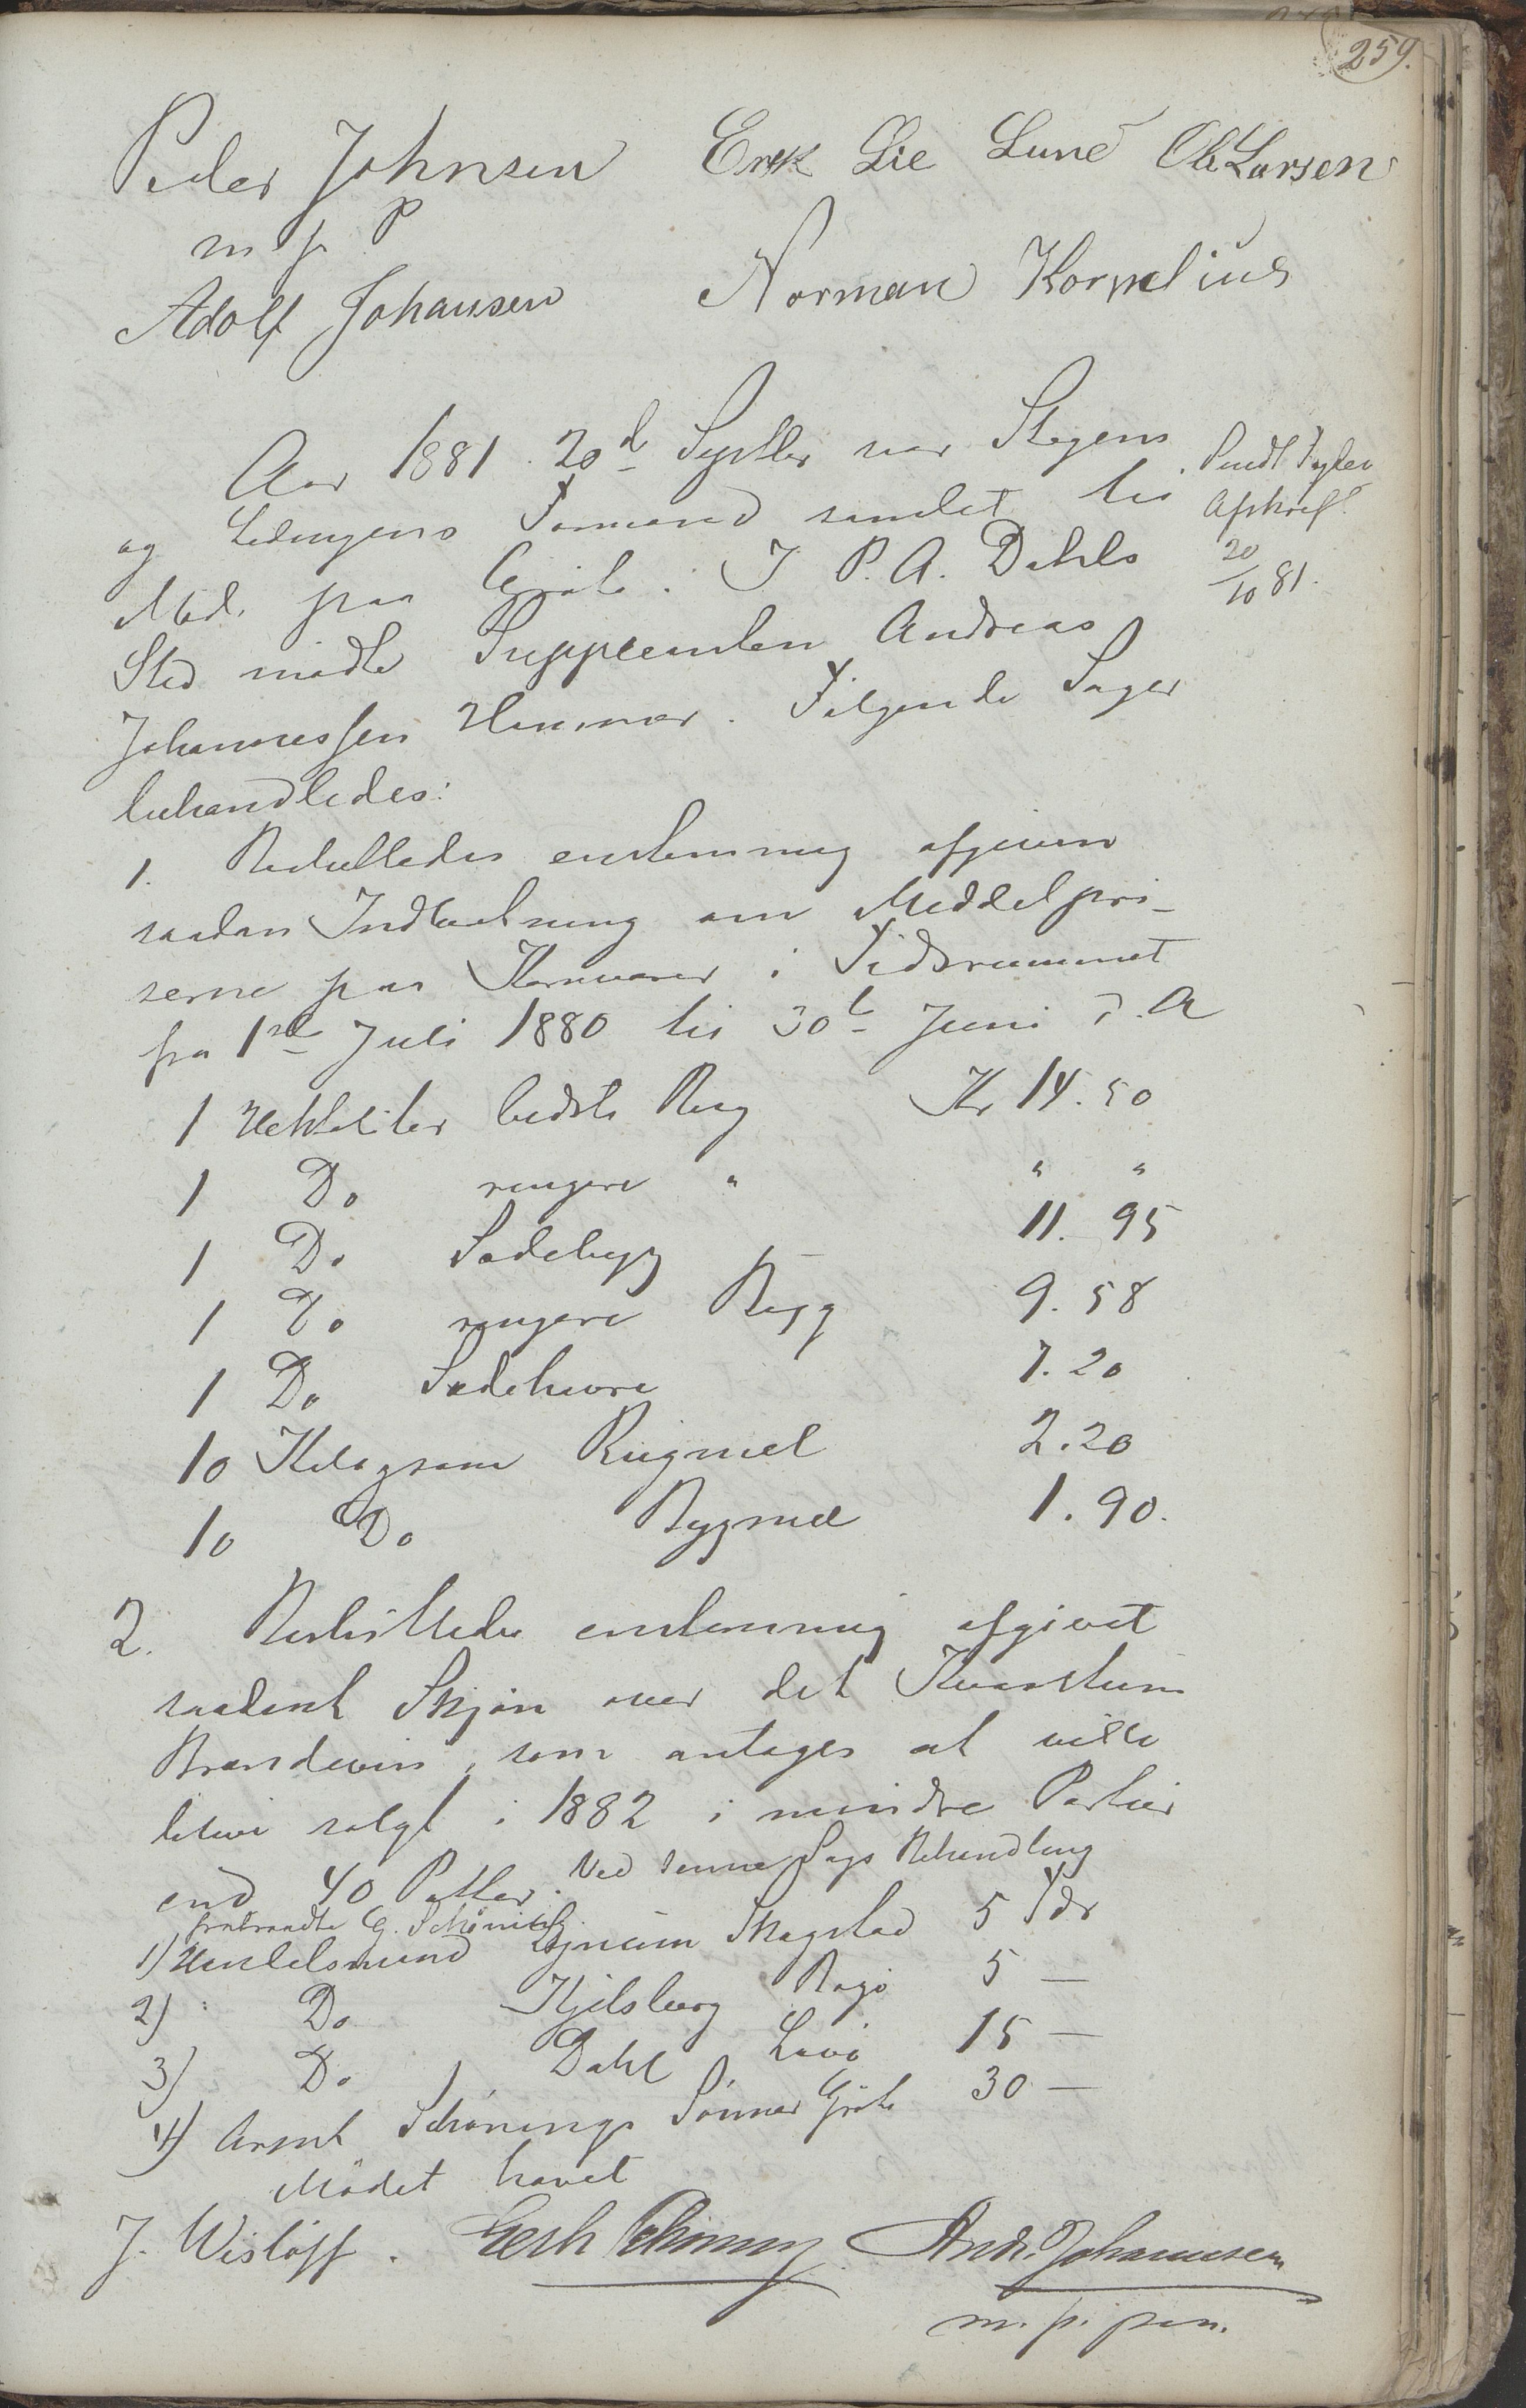 259.
Peder Johnsen Erik Lie Lund Ole Larsen
m p P
Adolf Johansen Norman Kornelius
Aar 1881 20de Septbr var Stegens
og Ledingens Formænd samlet til
Møde paa Grøtø. I P. A. Dahls
Sted mødte Suppleanten Andreas
Johannessen Hammer. Følgende Sager
behandledes:
Sendt Fogden
Afskrift
20/10 81.
1. Besluttedes enstemmig afgiven
saadan Indberetning om Middelpri-
serne paa Kornvarer i Tidsrummet
fra 1ste Juli 1880 til 30te Juni d. A
1 Hektoliter bedste Rug Kr 14.50
1 Do ringere " " "
1 Do Sædebyg 11.95
1 Do ringere Byg 9.58
1 Do Sædehavre 7.20
10 Kilogram Rugmel 2.20
10 Do Bygmel 1.90.
2. Besluttedes enstemmig afgivet
saadant Skjøn over det Kvantum
Brændevin, som antages at ville
blive solgt i 1882 i mindre Partier
end 40 Potter. Ved denne Sags Behandling
fratraadte G. Schøning.
1) Handelsmand Skagstad 5 Tdr
2) Do Kjelsberg Bogø 5 —
3) Do Dahl Løvø 15 —
4) Arent Schønings Sønner Grøtø 30 —
Mødet hævet
J. Wisløff. Gerh Schøning Andr. Johannesen
m. p. pen.